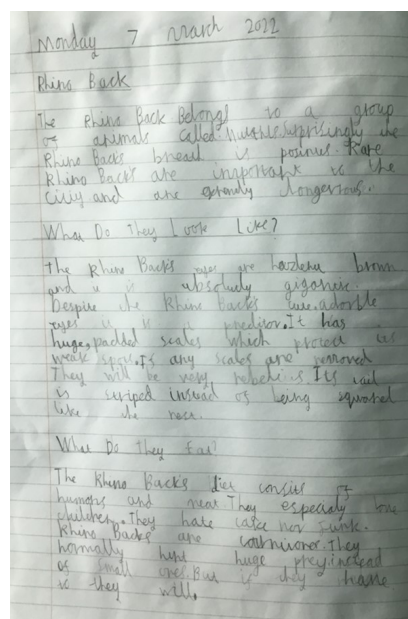 Monday 7 March 2022
Rhino Back
The Rhino Back Belongs to a group
of animals called. Surprisingly the
Rhino Backs bread is Rare
Rhino Backs are important to the
and are dangerous.
What Do They Look Like?
The Rhino Back's eyes are brown
and it is absolutely gigantic.
Despite the Rhino backs cute, adorble
eyes it is a preditor. It has
huge, padded scales which protect its
weak spot. If any scales are removed
They will be very Its tail
is striped instead of being
like the rest.
What Do They Eat?
The Rhino Backs diet consits of
humans and meat. They especialy love
children. They hate cake nor Junk.
Rhino Backs are They
normally hunt huge prey, instead
of small ones. But if they have
to they will.